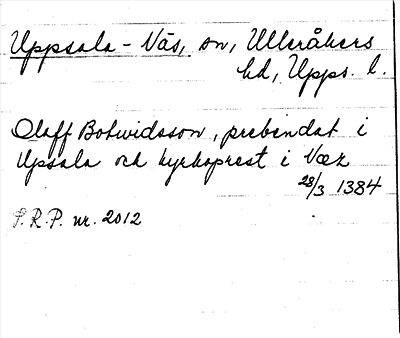 Uppsala - Näs, sn, Ulleråkers
hd, Upps. l.
Olaff Botwidsson, prebendat i
Upsala och kyrkoprest i Næz
28/3 1384
S.R.P. nr. 2012